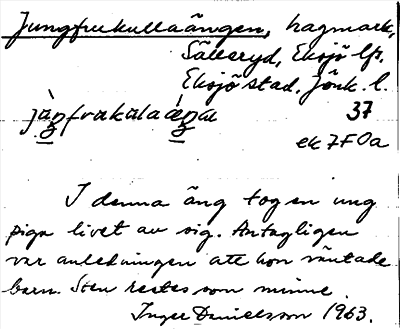 Jungfrukullaängen, hagmark,
Sälleryd, Eksjö lfs.
Eksjö stad, Jönk. l.
37
ek 7F0a
I denna äng tog en ung
piga livet av sig. Antagligen
var anledningen att hon väntade
barn. Sten restes som minne.
Inger Danielsson 1963.